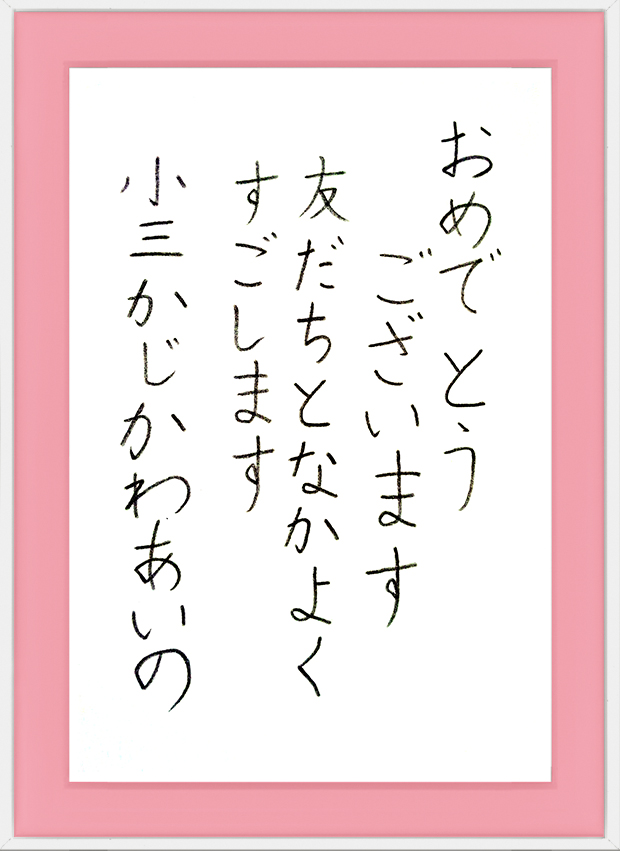 おめでとう
ございます
友だちとなかよく
すごします
小三かじかわあいの